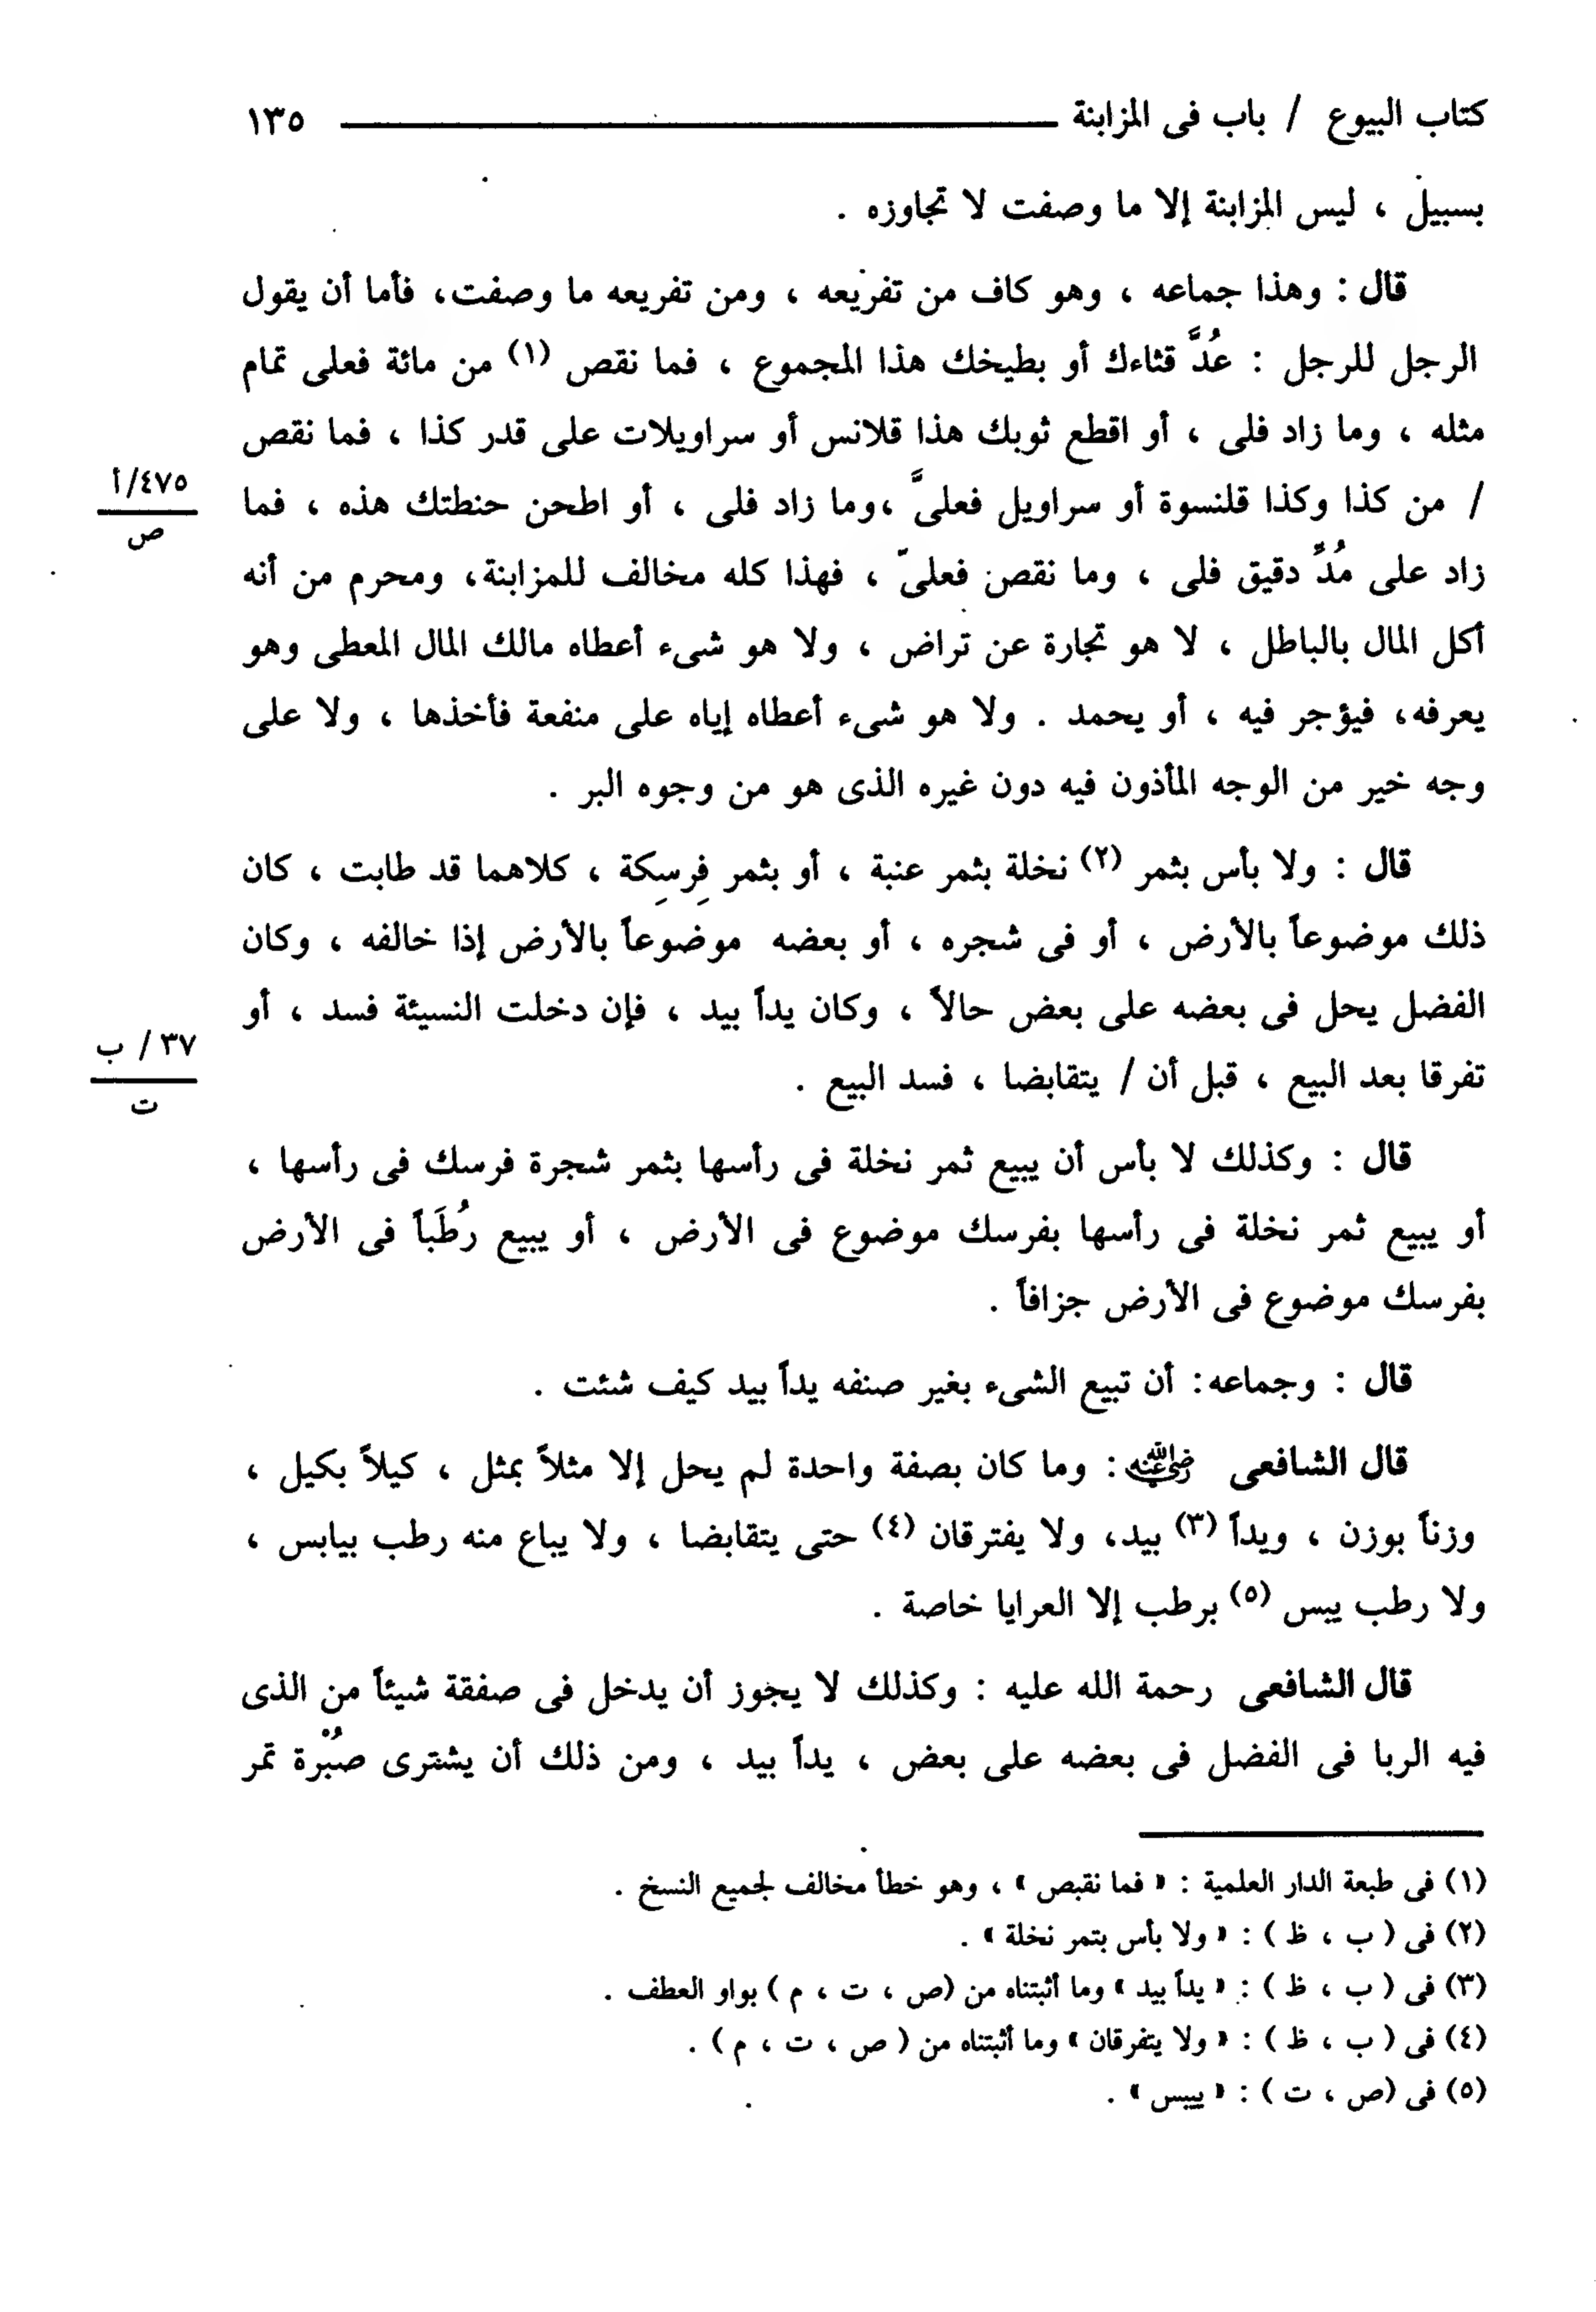 كتاب البيوع / باب فى المزابنة ١٣٥
بسبيل ، ليس المزابنة إلا ما وصفت لا تجاوزه .
قال : وهذا جماعه ، وهو كاف من تفريعه ، ومن تفريعه ما وصفت، فأما أن يقول
الرجل للرجل : عُدَّ قثاءك أو بطيخك هذا المجموع ، فما نقص (١) من مائة فعلى تمام
مثله ، وما زاد فلى ، أو اقطع ثوبك هذا قلانس أو سراويلات على قدر كذا ، فما نقص
/ من كذا وكذا قلنسوة أو سراويل فعلىَّ ،وما زاد فلى ، أو اطحن حنطتك هذه ، فما
٤٧٥/أ
ص
زاد على مُدِّ دقيق فلى ، وما نقص فعلىّ ، فهذا كله مخالف للمزابنة، ومحرم من أنه
أكل المال بالباطل ، لا هو تجارة عن تراض ، ولا هو شىء أعطاه مالك المال المعطى وهو
يعرفه، فيؤجر فيه ، أو يحمد . ولا هو شىء أعطاه إياه على منفعة فأخذها ، ولا على
وجه خير من الوجه المأذون فيه دون غيره الذى هو من وجوه البر .
قال : ولا بأس بثمر (٢) نخلة بثمر عنبة ، أو بثمر فِرسِكة ، كلاهما قد طابت ، كان
ذلك موضوعاً بالأرض ، أو فى شجره ، أو بعضه موضوعاً بالأرض إذا خالفه ، وكان
الفضل يحل فى بعضه على بعض حالاً ، وكان يداً بيد ، فإن دخلت النسيئة فسد ، أو
تفرقا بعد البيع ، قبل أن / يتقابضا ، فسد البيع .
٣٧/ ب
ت
قال : وكذلك لا بأس أن يبيع ثمر نخلة فى رأسها بثمر شجرة فرسك فى رأسها ،
أو يبيع ثمر نخلة فى رأسها بفرسك موضوع فى الأرض ، أو يبيع رُطَباً فى الأرض
بفرسك موضوع فى الأرض جزافاً .
قال : وجماعه: أن تبيع الشىء بغير صنفه يداً بيد كيف شئت .
قال الشافعى رضي الله عنه : وما كان بصفة واحدة لم يحل إلا مثلاً بمثل ، كيلاً بكيل ،
وزناً بوزن ، ويداً (٣) بيد، ولا يفترقان (٤) حتى يتقابضا ، ولا يباع منه رطب بيابس ،
ولا رطب يبس (٥) برطب إلا العرايا خاصة .
قال الشافعى رحمة الله عليه : وكذلك لا يجوز أن يدخل فى صفقة شيئاً من الذى
فيه الربا فى الفضل فى بعضه على بعض ، يداً بيد ، ومن ذلك أن يشترى صُبْرة تمر
(١) فى طبعة الدار العلمية : « فما نقبص » ، وهو خطأ مخالف لجميع النسخ .
(٢) فى ( ب ، ظ ) : « ولا بأس بتمر نخلة » .
(٣) فى ( ب ، ظ ) : « يداً بيد » وما أثبتناه من (ص ، ت ، م ) بواو العطف .
(٤) فى ( ب ، ظ ) : « ولا يتفرقان » وما أثبتناه من ( ص ، ت ، م ) .
(٥) فى (ص ، ت ) : « ييبس » .